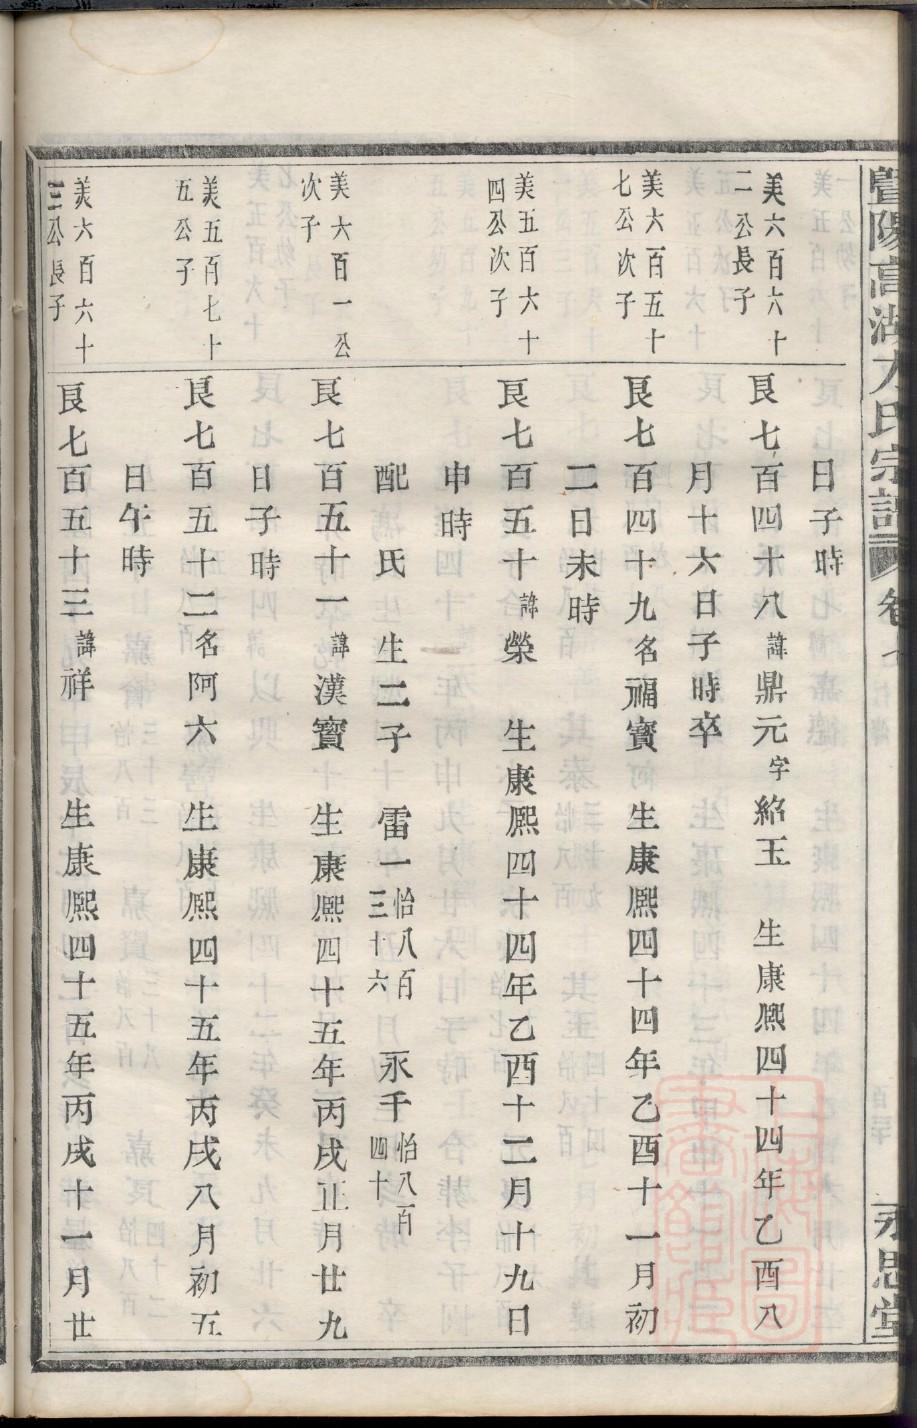 暨陽高湖
氏宗譜
卷七
永思堂
日子時
美六百六十
二公長子
艮七百四十八諱鼎元字紹玉 生康熙四十四年乙酉八
月十六日子時卒
美六百五十
七公次子
艮七百四十九名福寶 生康熙四十四年乙酉十一月初
二日未時
美五百六十
四公次子
艮七百五十諱榮 生康熙四十四年乙酉十二月十九日
申時
配氏 生二子 雷一怡八百三十六 永千怡八百四十
美六百一公
次子
艮七百五十一諱漢寶 生康熙四十五年丙戌正月廿九
日子時
美五百七十
五公子
艮七百五十二名阿六 生康熙四十五年丙戌八月初五
日午時
美六百六十
三公長子
艮七百五十三諱祥 生康熙四十五年丙戌十一月廿